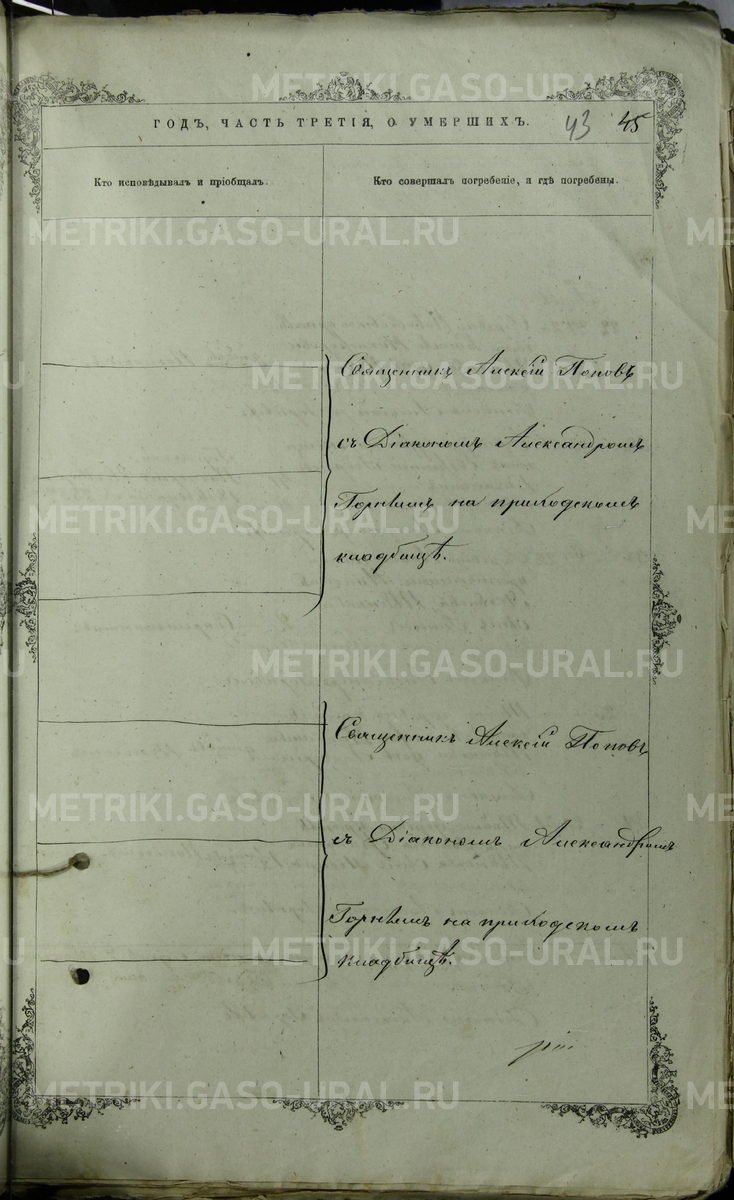 METRIKI.GASO-URAL.RU
ГОДЪ, ЧАСТЬ ТРЕТІЯ, О УМЕРШИХЪ. 43 45
Кто исповѣдывалъ и пріобщалъ.
Кто совершалъ погребеніе, и гдѣ погребены.
Священникъ Алексій Поповъ
съ Діакономъ Александромъ
Горнымъ на приходскомъ
кладбищѣ.
Священникъ Алексій Поповъ
съ Діакономъ Александромъ
на приходскомъ
кладбищѣ.